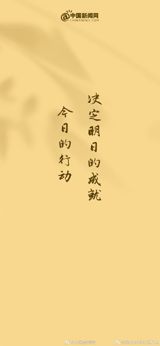 中国新闻网
今日的行动
决定明日的成就